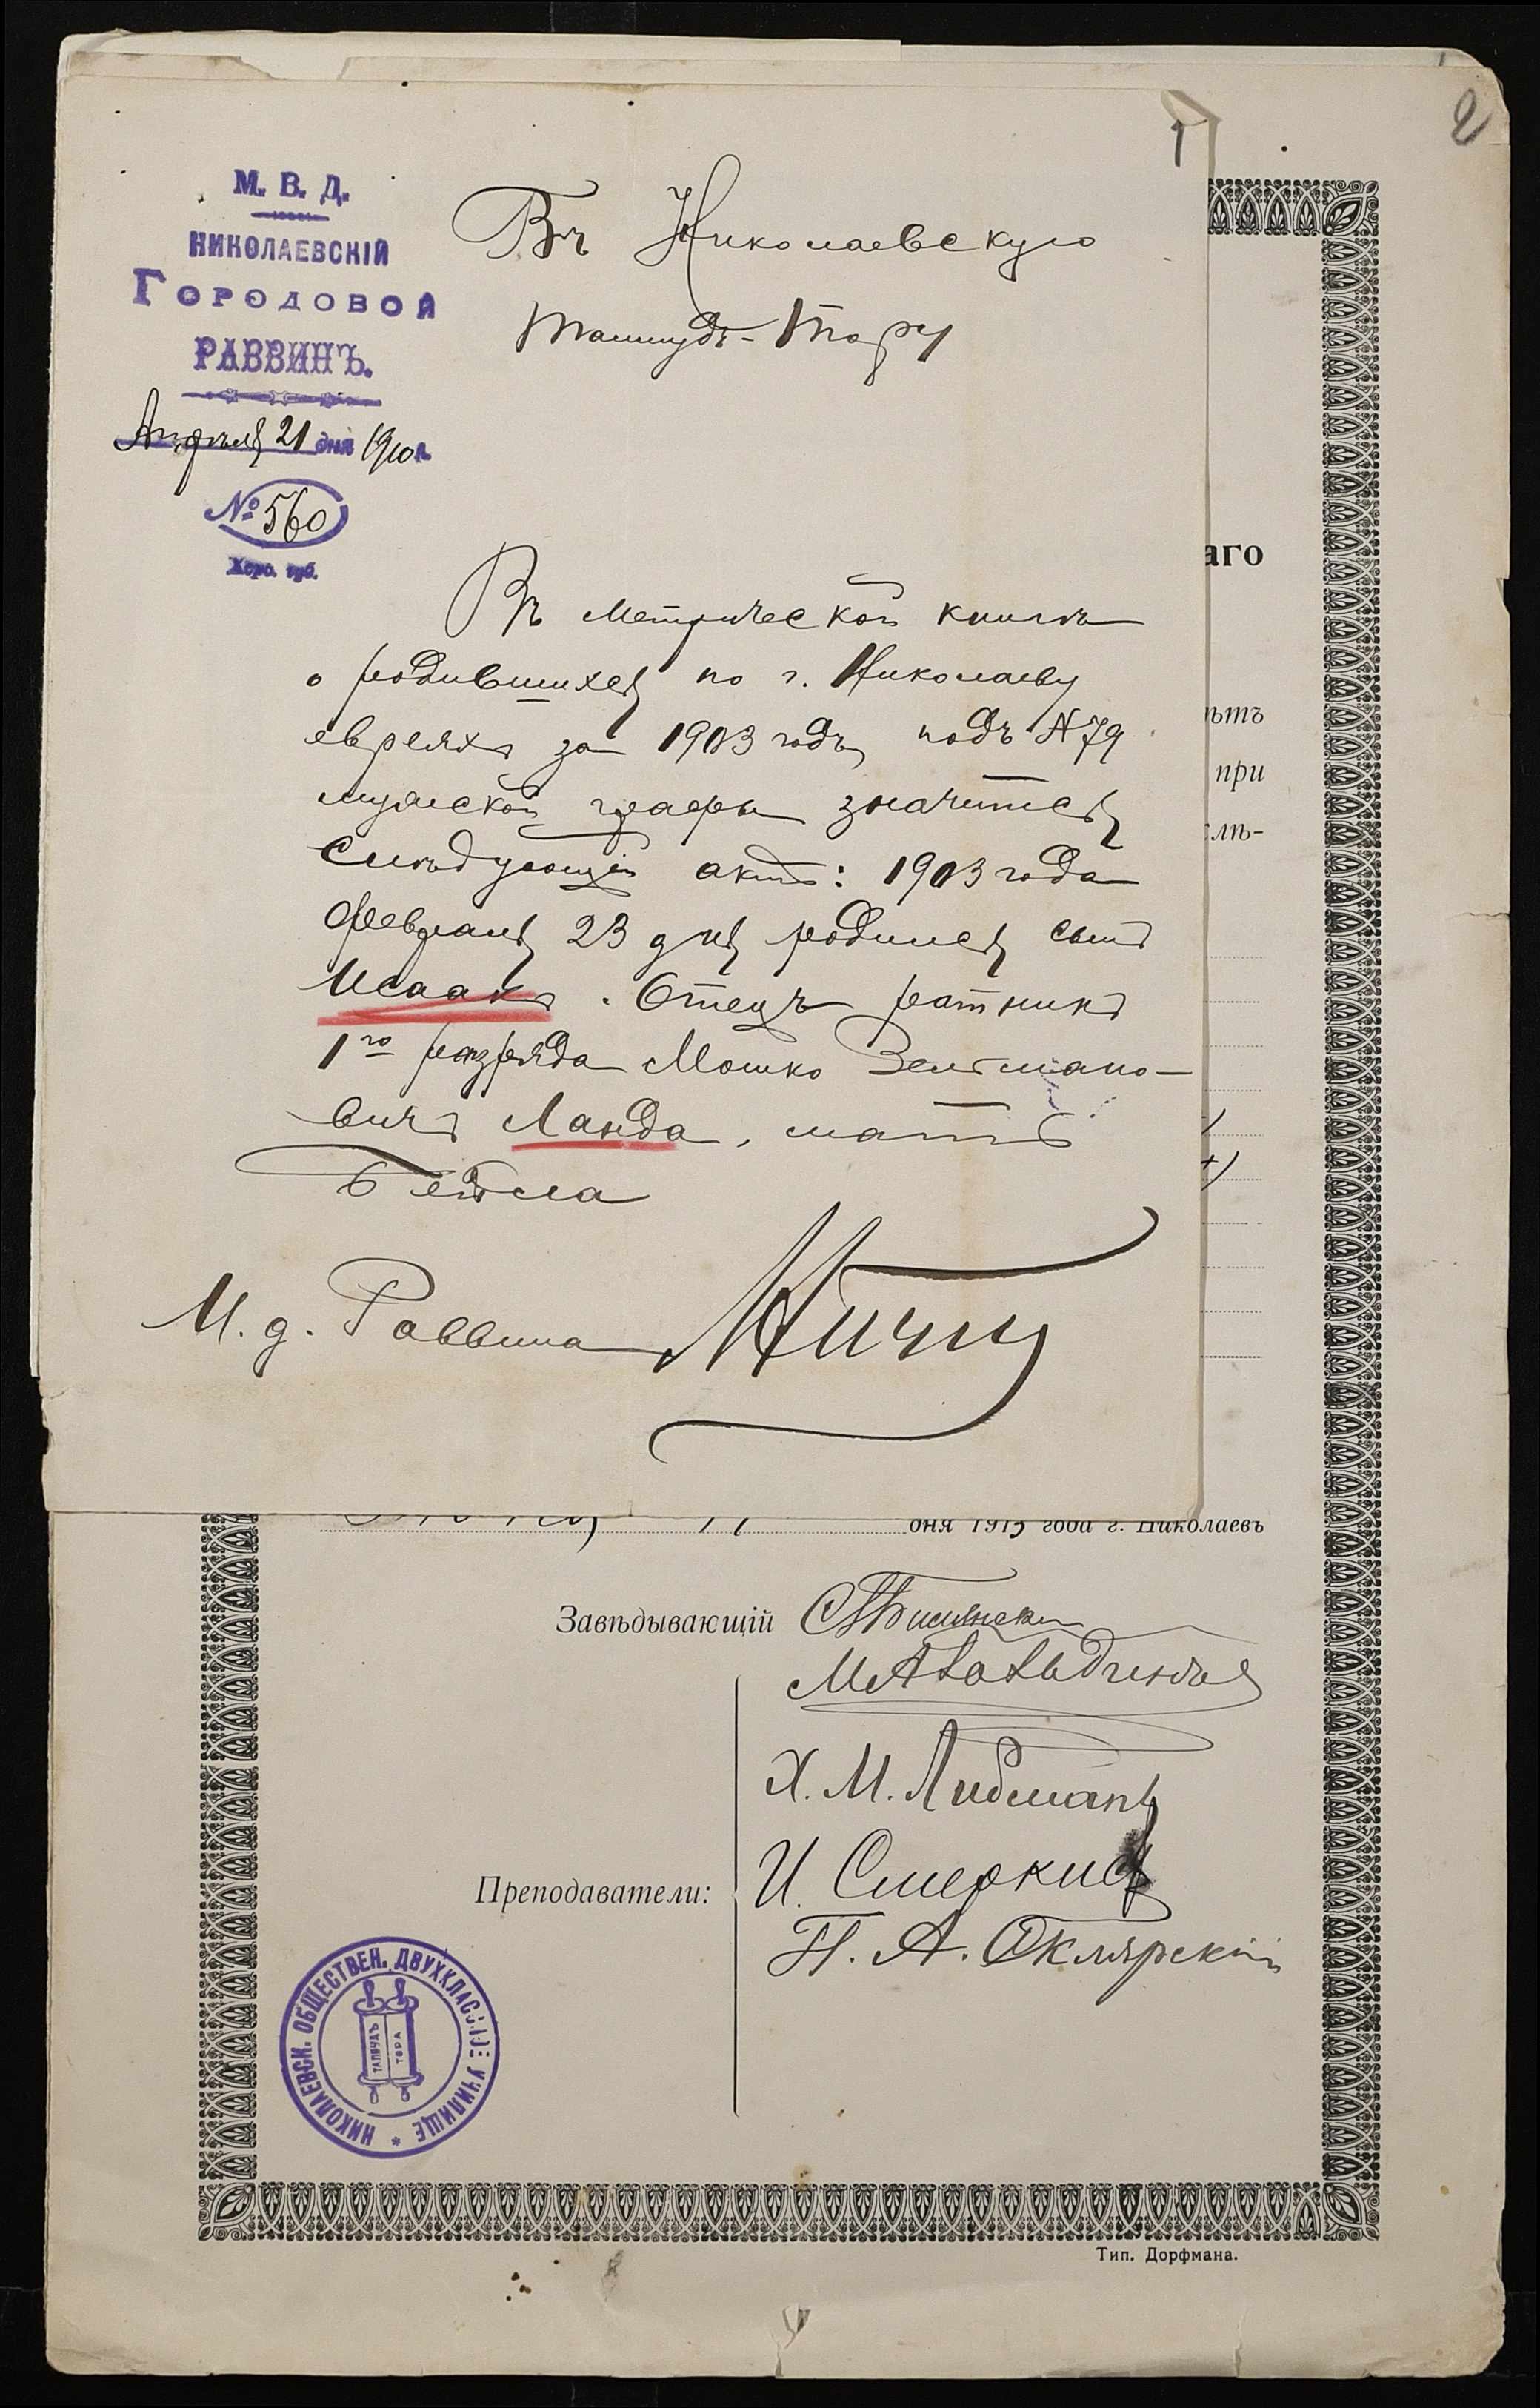 2
1
М. В. Д.
НИКОЛАЕВСКІЙ
ГОРОДОВОЙ
РАВВИНЪ.
Апрѣля 21 дня 1910 г.
№ 560
Херс. губ.
Въ Николаевскую
Талмудъ-Тору
Въ метрической книгѣ
о родившихся по г. Николаеву
евреяхъ за 1903 годъ, подъ N 79
мужской графы значится
слѣдующій актъ: 1903 года
февраля 23 дня родился сынъ
Исаакъ. Отецъ ратникъ
1го разряда Мошко Зельмано-
вичъ Ланда, мать
Бейла
И. д. Раввина
аго
ѣтъ
при
лѣ-
дня 1915 года г. Николаевъ
Завѣдывающій
Х. М. Либманъ
Преподаватели:
И. Смеркис
П. А. Склярскій
НИКОЛАЕВСК. ОБЩЕСТВЕН. ДВУХКЛАССНОЕ УЧИЛИЩЕ *
ТАЛМУДЪ ТОРА
Тип. Дорфмана.